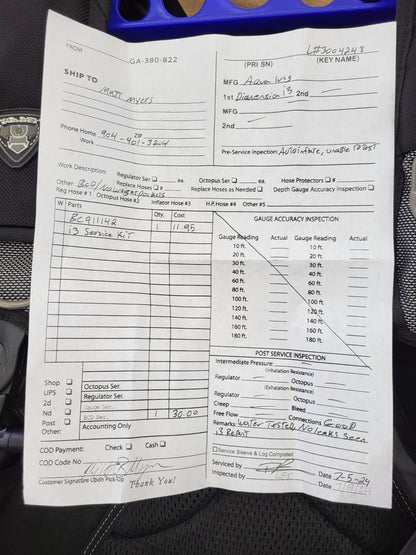 FROM
GA-380-822
L#3004243
(PRI SN) (KEY NAME)
SHIP TO
Matt Myers
MFG Aqua lung
1st Dimension i3 2nd
MFG
2nd
Phone Home 904-401-3264
ZIP
Work
Pre-Service Inpection: Auto inflate, unable to Test
Work Description: Regulator Ser. ea. Octopus Ser. ea. Hose Protectors #
Other: BCD/No weight pockets Replace Hoses # Replace Hoses as Needed Depth Gauge Accuracy Inspection
Reg Hose # 1 Octopus Hose #2 Inflator Hose #3 H.P. Hose #4 Other #5
W Parts Qty. Cost
BC911142
i3 Service Kit 1 11.95
GAUGE ACCURACY INSPECTION
Gauge Reading Actual Gauge Reading Actual
10 ft. 10 ft.
20 ft. 20 ft.
30 ft. 30 ft.
40 ft. 40 ft.
60 ft. 60 ft.
80 ft. 80 ft.
100 ft. 100 ft.
120 ft. 120 ft.
140 ft. 140 ft.
160 ft. 160 ft.
180 ft. 180 ft.
POST SERVICE INSPECTION
Intermediate Pressure:
(Inhalation Resistance)
Regulator Octopus
(Exhalation Resistance)
Regulator Octopus
Creep Bleed
Free Flow Connections Good
Remarks: Water Tested, No leaks Seen
i3 Rebuilt
Shop
UPS
2d
Nd
Post
Other:
Octopus Ser.
Regulator Ser.
Gauge Ser.
BCD Ser. 1 30.00
Accounting Only
COD Payment: Check Cash
COD Code No
Customer Signature Updn Pick-Up Thank You!
Service Sleeve & Log Completed
Serviced by Date 2-5-24
Inspected by Date